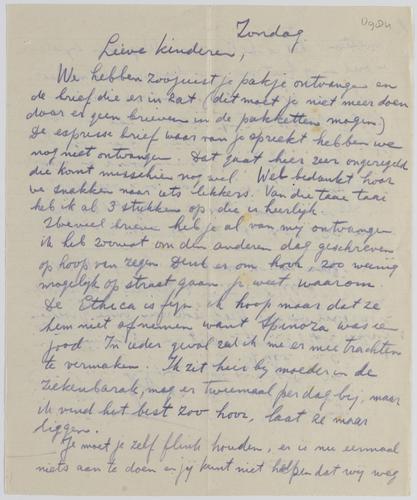 0984
Zondag
Lieve kinderen,
We hebben zoojuist je pakje ontvangen en
de brief die er in zat (dit moet je niet meer doen
daar er geen brieven in de pakketten mogen)
De espresse brief waar van je spreekt hebben we
nog niet ontvangen. Dat gaat hier zeer ongeregeld
die komt misschien nog wel. Wel bedankt hoor
we snakken naar iets lekkers. Van die taai taai
heb ik al 3 stukken op, die is heerlijk.
Hoeveel brieven heb je al van mij ontvangen
ik heb zoowat om den anderen dag geschreven
op hoop van zegen. Denk er om hoor, zoo weinig
mogelijk op straat gaan. je weet waarom
De Ethica is fijn. ik hoop maar dat ze
hem niet afnemen want Spinoza was een
jood. In ieder geval zal ik me er mee trachten
te vermaken. Ik zit hier bij moeder in de
ziekenbarak, mag er tweemaal per dag bij, maar
ik vind het best zoo hoor, laat ze maar
liggen.
Je moet je zelf flink houden, er is nu eenmaal
niets aan te doen en jij kunt niet helpen dat wij weg